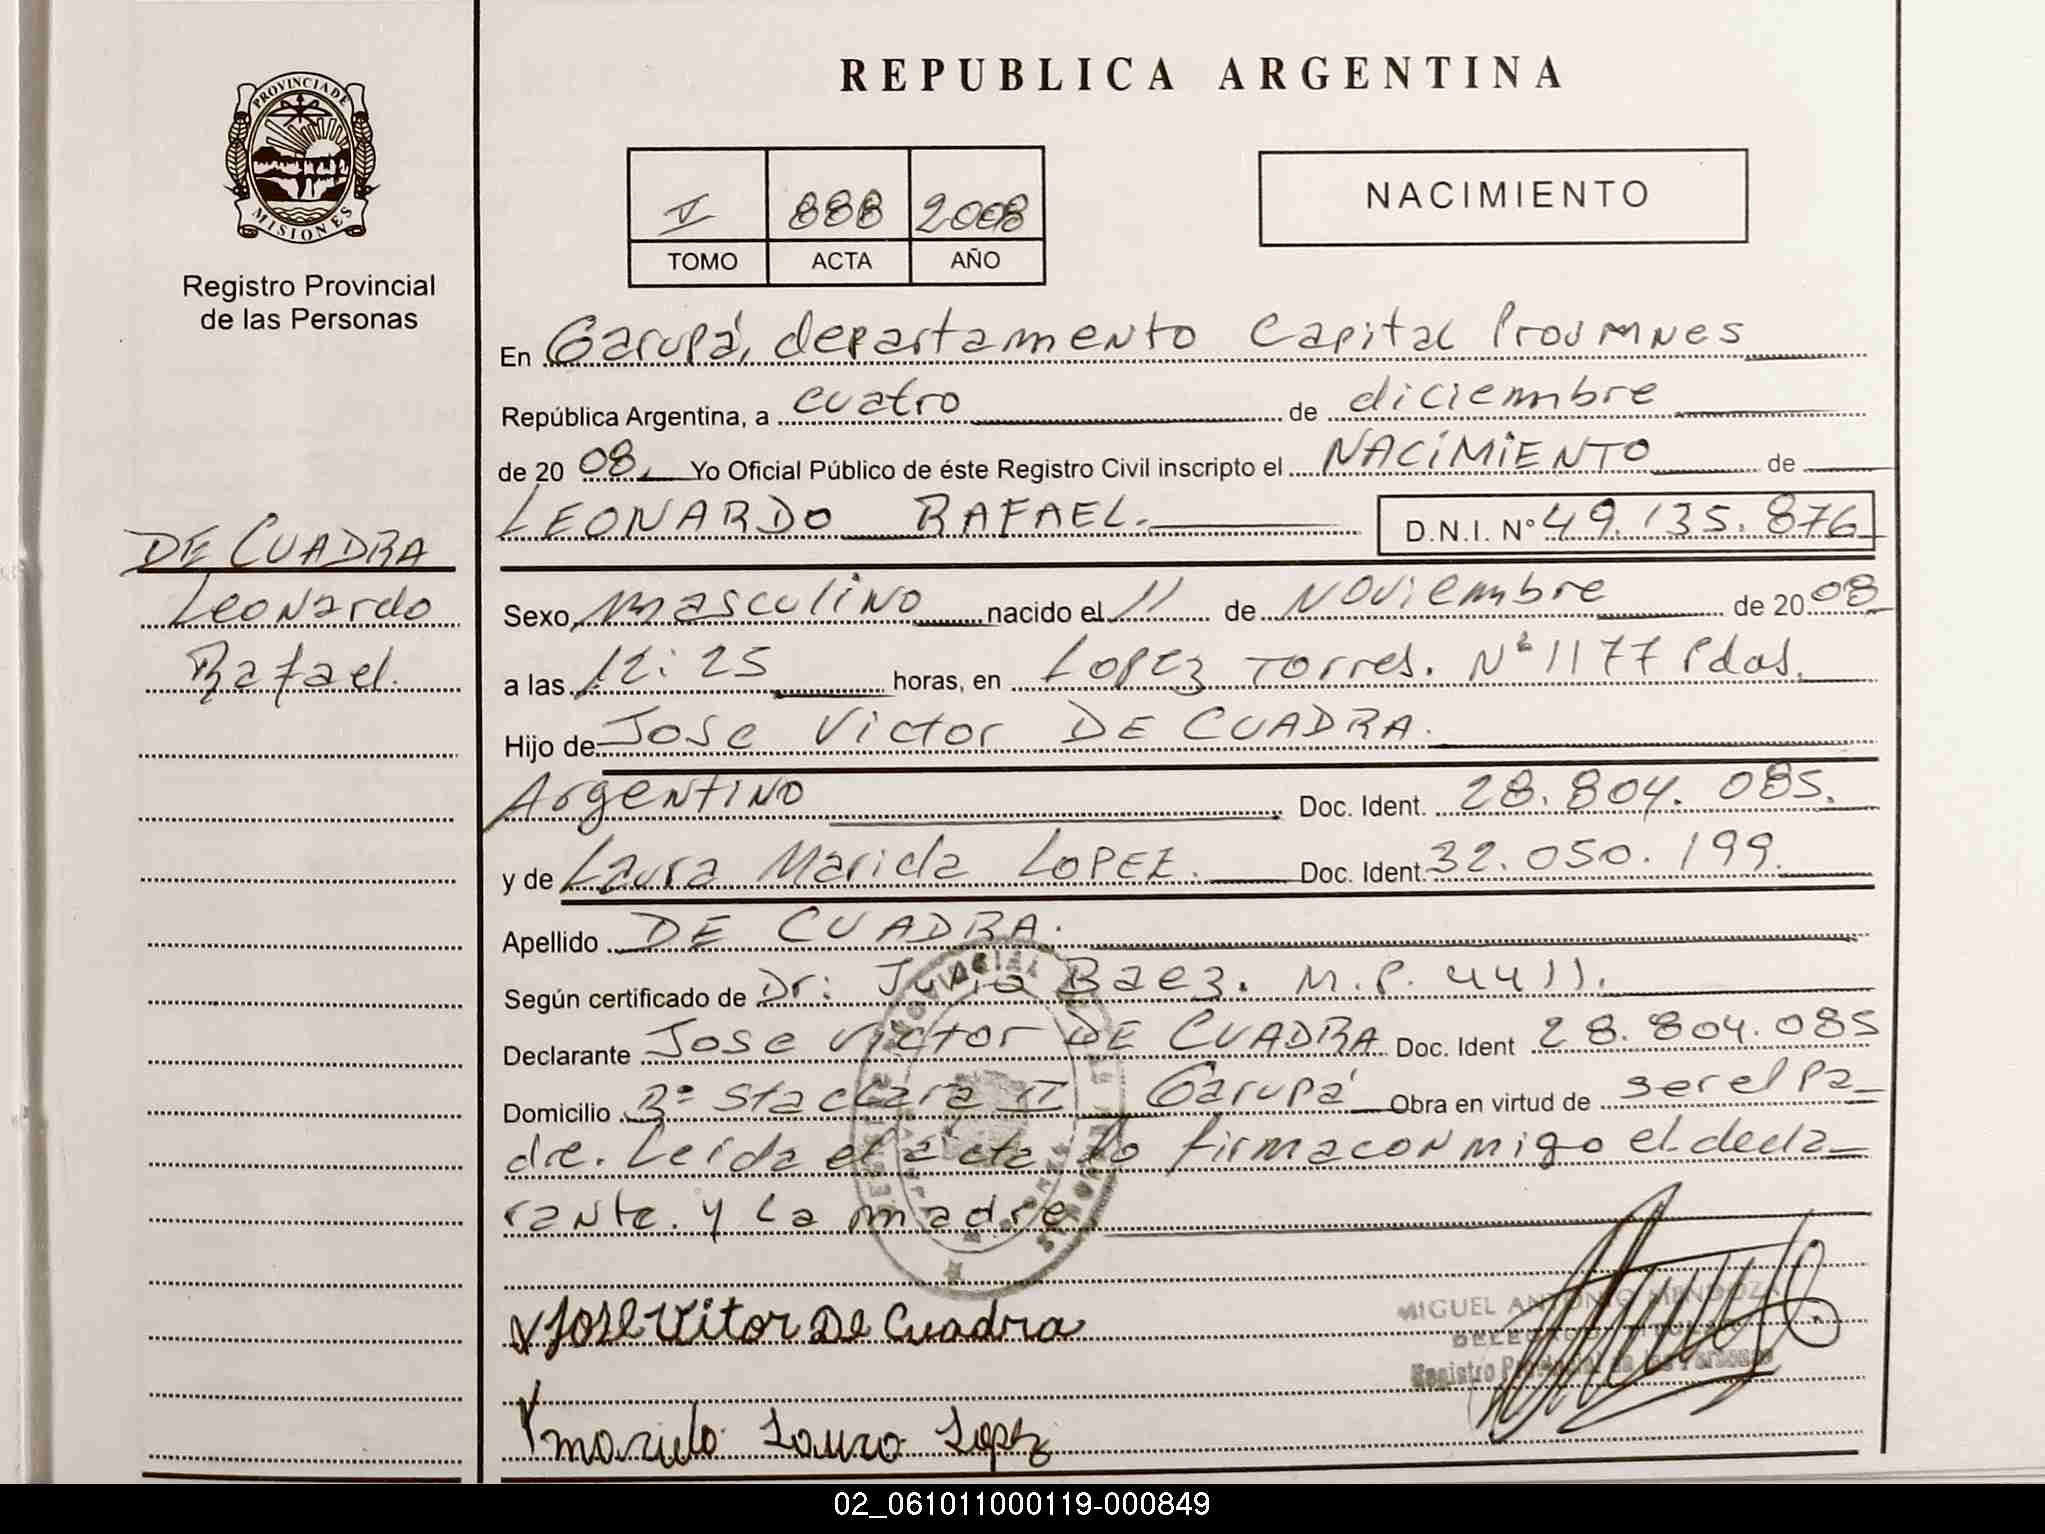 REPUBLICA ARGENTINA
PROVINCIA DE
MISIONES
Registro Provincial
de las Personas
V 888 2008
TOMO ACTA AÑO
NACIMIENTO
En Garupá, departamento Capital Prov MNES
República Argentina, a cuatro de diciembre
de 20 08. Yo Oficial Público de éste Registro Civil inscripto el NACIMIENTO de
LEONARDO RAFAEL. D.N.I. Nº 49.135.876
DE CUADRA
Leonardo
Rafael.
Sexo masculino nacido el 11 de Noviembre de 20 08
a las 12:25 horas, en Lopez Torres. Nº 1177 Pdas.
Hijo de Jose Victor DE CUADRA.
Argentino Doc. Ident. 28.804.085.
y de Laura Mariela LOPEZ. Doc. Ident. 32.050.199.
Apellido DE CUADRA.
Según certificado de Dr: Baez. M.P. 4411.
Declarante Jose Victor DE CUADRA Doc. Ident 28.804.085
Domicilio Bº Sta Clara II Garupá Obra en virtud de ser el Pa-
dre. Leída el acta lo firma conmigo el decla-
rante. y La madre
Jose Vitor De Cuadra
MIGUEL ANTONIO MENDOZA
Registro Provincial de las Personas
Mariela Laura Lopez
02_061011000119-000849